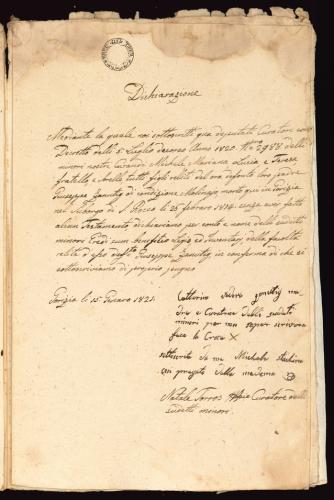 Dichiarazione
Mediante la quale noi sottoscritti qua deputati Curatore con
Decreto delli 5 Luglio decorso Anno 1820 N.ro 2988 delli
minori nostri Curandi Michele, Mariana, Lucia e Teresa
fratello e sorelle tutti figli del ora defunto loro padre
Giuseppe Zanutig di condizione Molinajo, morto qui in Gorizia
nel Suborgo di S. Rocco le 25 febraro 1814 senza aver fatto
alcun Testamento dichiariamo per conto e nome delli suddetti
minori Eredi cum beneficio Legis et Inventarj della facoltà
del Giuseppe Zanutig in conferma di che ci
sottoscriviamo di proprio pugno
Gorizia li 15 Genaro 1821.
Catterina vedova Zanutig ma
dre e Curatrice delli sudeti
minori per non saper scrivere
fece la Croce X
sottoscrito da me Michele
con pregato dalla medema
Natale Curatore delli
sudetti minori.